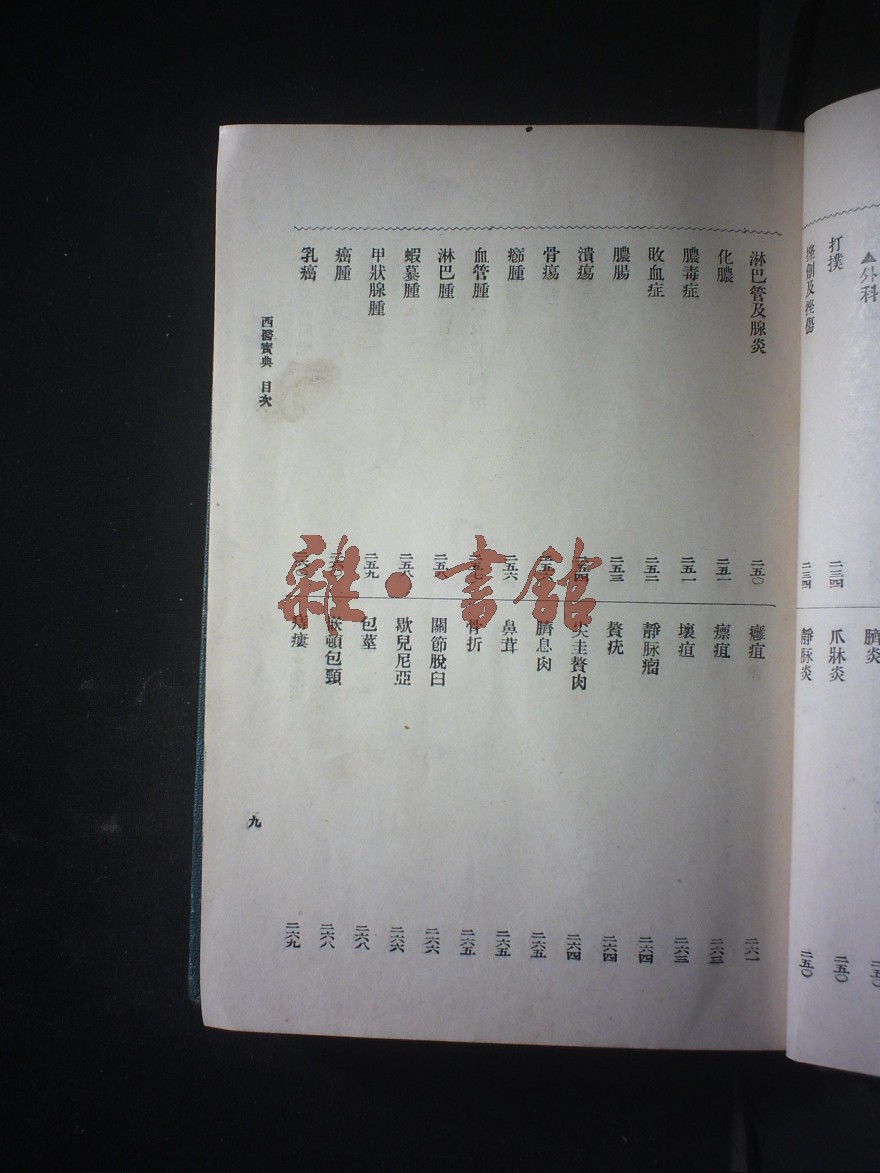 ▲外科
打撲 二三四
挫創及挫傷 二三四
臍炎 二五〇
爪牀炎 二五〇
靜脈炎 二五〇
淋巴管及腺炎 二五〇
化膿 二五一
膿毒症 二五一
敗血症 二五二
膿腸 二五三
潰瘍 二五四
骨瘍
癤腫 二五六
血管腫 二五七
淋巴腫 二五八
蝦蟇腫 二五八
甲狀腺腫 二五九
癌腫
乳癌
癰疽 二六一
瘭疽 二六三
壞疽 二六三
靜脈瘤 二六四
贅疣 二六四
尖圭贅肉 二六四
臍息肉 二六五
鼻茸 二六五
骨折 二六五
關節脫臼 二六六
歇兒尼亞 二六六
包莖 二六八
嵌頓包頸 二六八
痔瘻 二六九
西醫寶典 目次
九
雜·書館